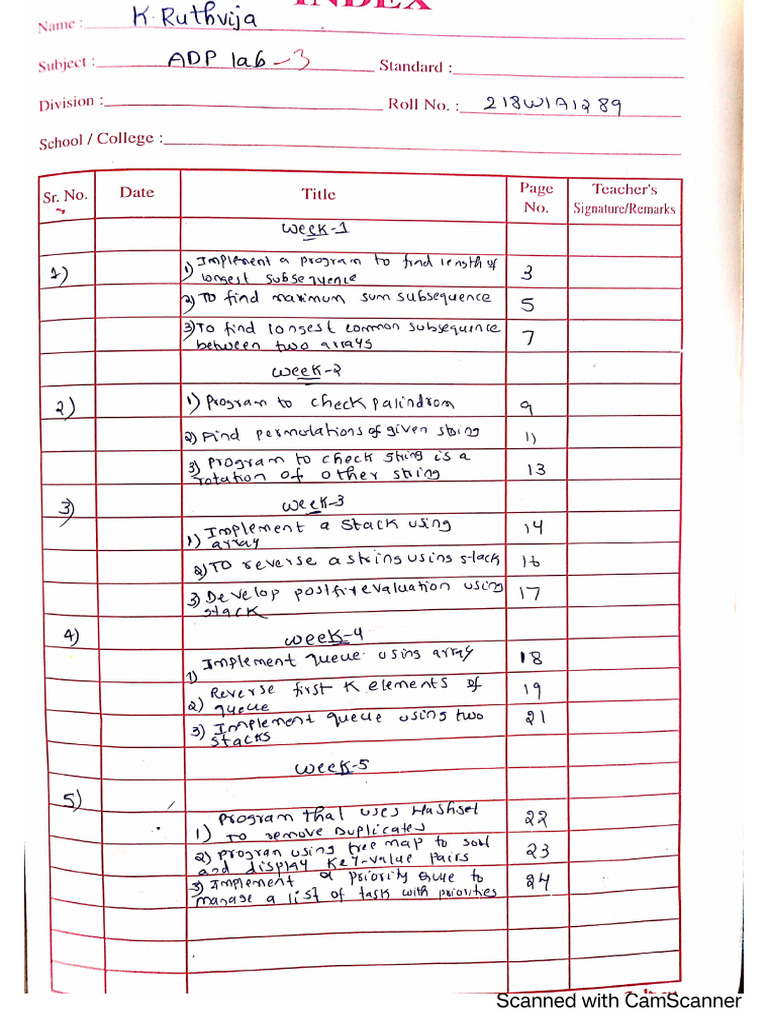 INDEX
Name : K. Ruthvija
Subject : ADP lab-3 Standard :
Division : Roll No. : 218W1A1289
School / College :
Sr. No. Date Title Page No. Teacher's Signature/Remarks
Week-1
1) 1) Implement a program to find length of
longest subsequence 3
2) To find maximum sum subsequence 5
3) To find longest common subsequence
between two arrays 7
Week-2
2) 1) Program to check palindrom 9
2) Find permutations of given string 11
3) Program to check string is a
rotation of other string 13
3) Week-3
1) Implement a stack using
array 14
2) To reverse a string using stack 16
3) Develop postfix evaluation using
stack 17
4) Week-4
1) Implement queue using array 18
2) Reverse first K elements of
queue 19
3) Implement queue using two
stacks 21
Week-5
5)
1) Program that uses Hashset
To remove Duplicates 22
2) Program using tree map to sort
and display Key-value Pairs 23
3) Implement a priority queue to
manage a list of task with priorities 24
Scanned with CamScanner